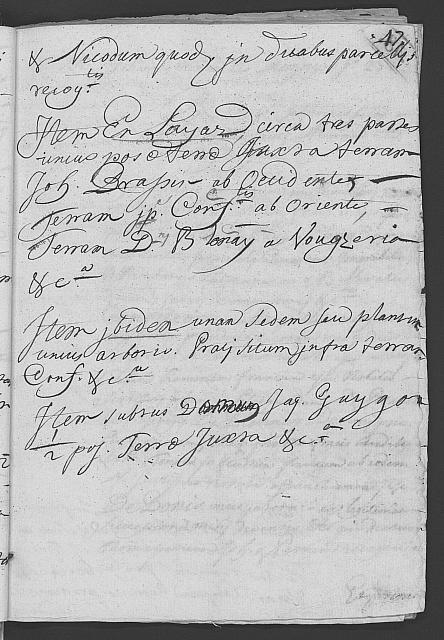 & Nicodum quod jn duabus parcellis
recog.tis
Jtem En Layaz circa tres partes
unius pose Terræ Juxta terram
Joh. Brasier ab Occidente
Terram jp. Conf.tis ab Oriente,
Terram D. Blonay a Vougzeria
&c.a
Jtem jbidem unam sedem seu plantam
unius arboris. Pratj situm jnfra terram
Conf. &c.a
Jtem subtus Domum Jaq. Guygon
1/2 pos. Terræ Juxta &c.a